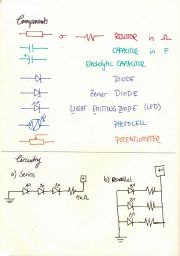 Components
or RESISTOR in Ω
CAPACITOR in F
Electrolytic CAPACITOR
DIODE
Zener DIODE
LIGHT EMITTING DIODE (LED)
PHOTOCELL
POTENTIOMETER
Circuitry
a) Series
b) Parallel
1kΩ